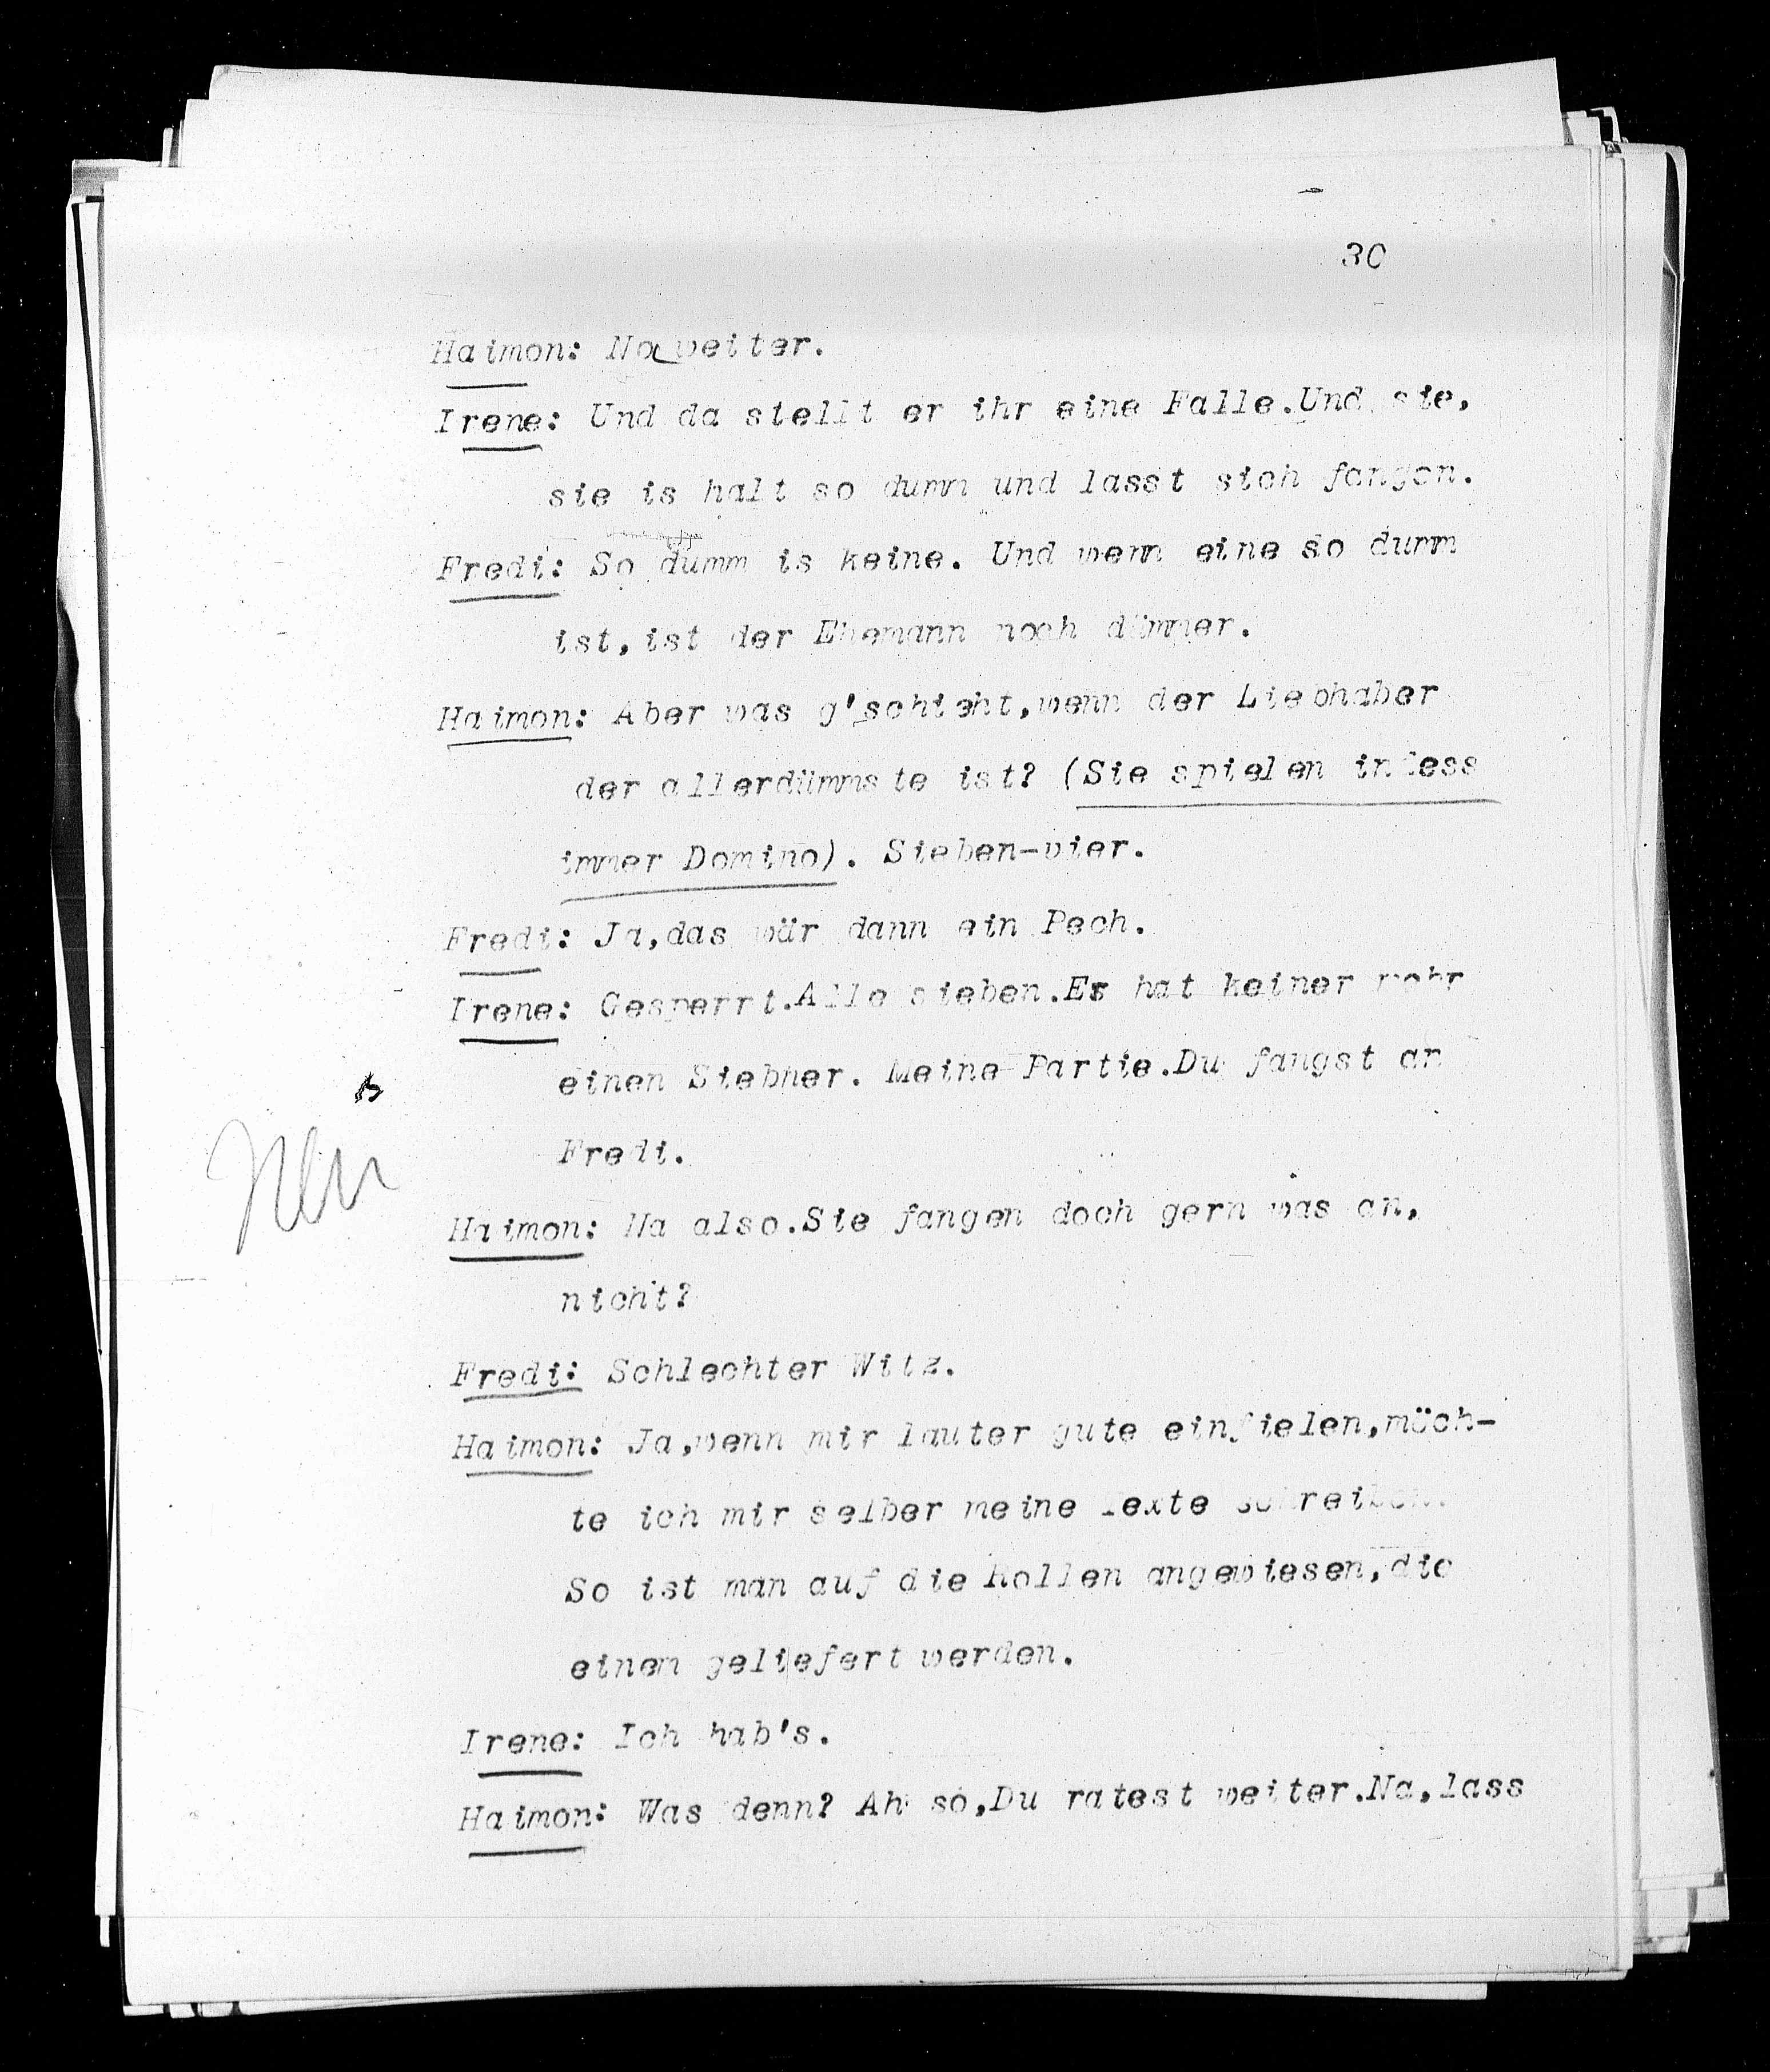 30
Haimon: Na weiter.
Irene: Und da stellt er ihr eine Falle.Und sie,
sie is halt so dumm und lasst sich fangen.
Fredi: So dumm is keine. Und wenn eine so dumm
ist,ist der Ehemann noch dümmer.
Haimon: Aber was g'schieht,wenn der Liebhaber
der allerdümmste ist? (Sie spielen indess
immer Domino). Sieben-vier.
Fredi: Ja,das wär dann ein Pech.
Irene: Gesperrt.Alle sieben.Es hat keiner mehr
einen Siebner. Meine Partie.Du fangst an
Fredi.
Haimon: Na also.Sie fangen doch gern was an,
nicht?
Fredi: Schlechter Witz.
Haimon: Ja,wenn mir lauter gute einfielen,möch-
te ich mir selber meine Texte schreiben.
So ist man auf die Rollen angewiesen,die
einem geliefert werden.
Irene: Ich hab's.
Haimon: Was denn? Ah so,Du ratest weiter.Na,lass